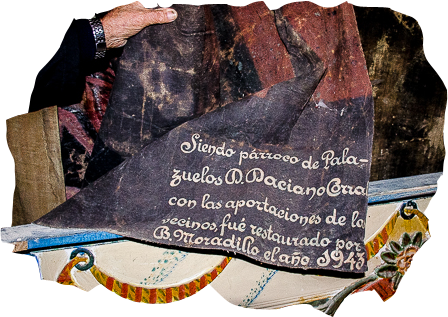 Siendo párroco de Pala-
zuelos D. Daciano
con las aportaciones de
vecinos fué restaurado por
B. Moradillo el año 1943